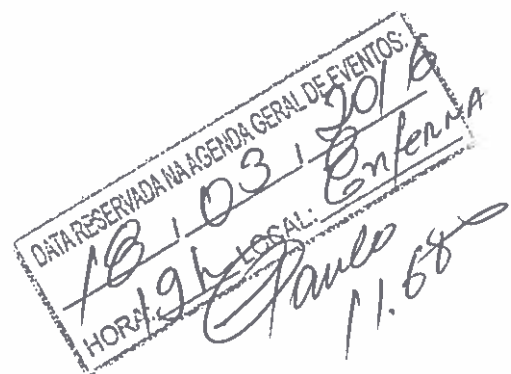 DATA RESERVADA NA AGENDA GERAL DE EVENTOS:
18 / 03 / 2016
HORA: 19h LOCAL: Enferna
Paulo
11.68